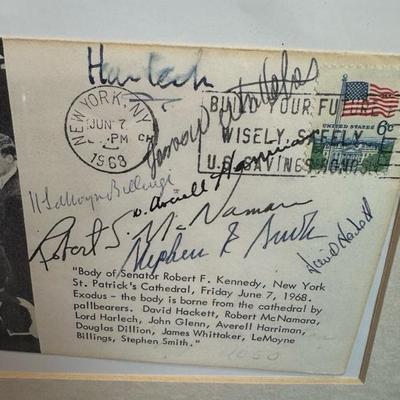 Harlech
NEW YORK, N.Y.
JUN 7
PM
1968
BUILD YOUR FUTURE
WISELY SAFELY
U.S. SAVINGS BONDS
UNITED STATES 6¢
James W. Whittaker
K LeMoyne Billings
W. Averell Harriman
Robert S. McNamara
Stephen E Smith
David Hackett
"Body of Senator Robert F. Kennedy, New York
St. Patrick's Cathedral, Friday June 7, 1968.
Exodus - the body is borne from the cathedral by
pallbearers. David Hackett, Robert McNamara,
Lord Harlech, John Glenn, Averell Harriman,
Douglas Dillion, James Whittaker, LeMoyne
Billings, Stephen Smith."